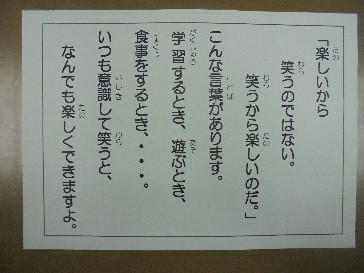 「楽しいから
笑うのではない。
笑うから楽しいのだ。」
こんな言葉があります。
学習するとき、遊ぶとき、
食事をするとき、・・・・。
いつも意識して笑うと、
なんでも楽しくできますよ。